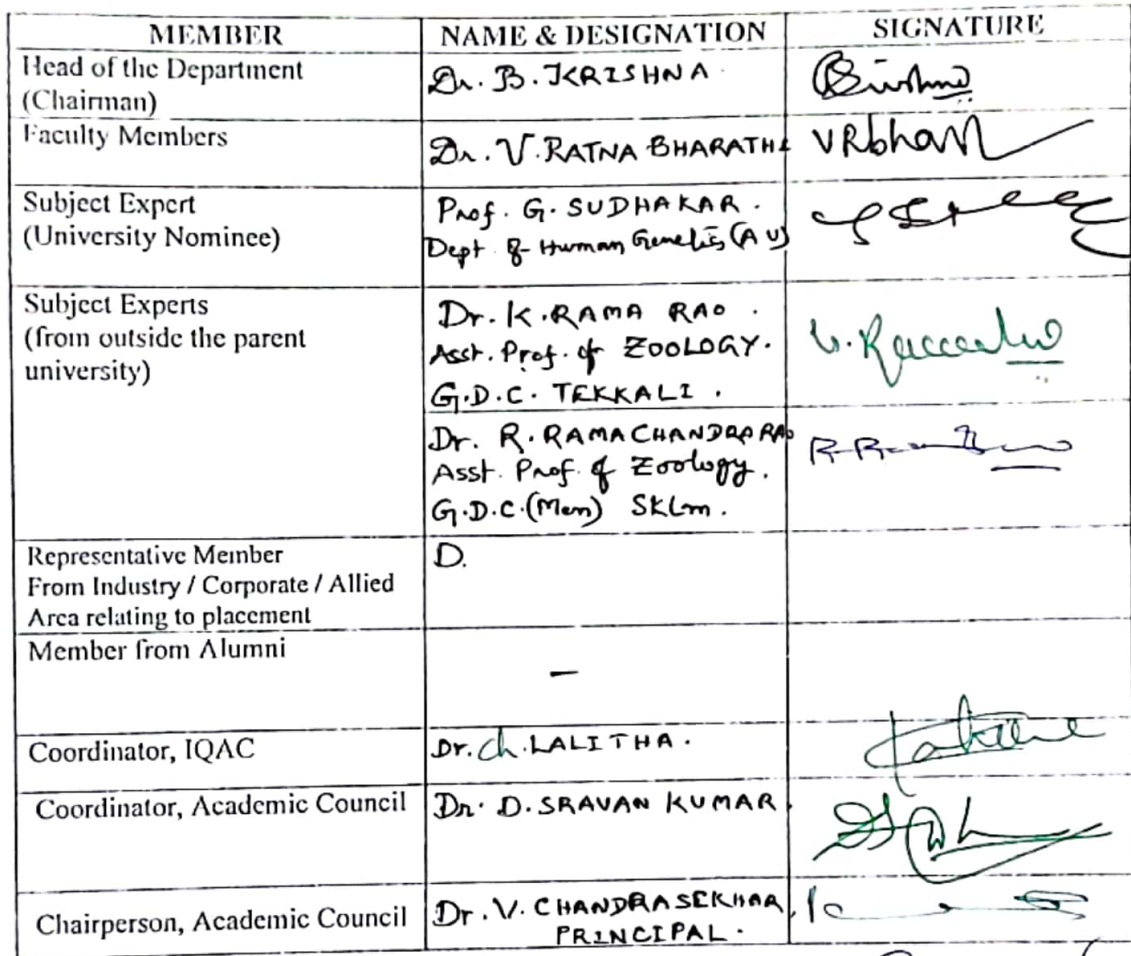 MEMBER NAME & DESIGNATION SIGNATURE
Head of the Department
(Chairman)
Dr. B. KRISHNA
Faculty Members
Dr. V. RATNA BHARATHI
VRbhar
Subject Expert
(University Nominee)
Prof. G. SUDHAKAR.
Dept. of Human Genetics (A U)
Subject Experts
(from outside the parent
university)
Dr. K. RAMA RAO.
Asst. Prof. of ZOOLOGY.
G.D.C. TEKKALI.
Dr. R. RAMACHANDRA RAO
Asst. Prof. of Zoology.
G.D.C. (Men) SKLm.
Representative Member
From Industry / Corporate / Allied
Area relating to placement
D.
Member from Alumni
–
Coordinator, IQAC
Dr. Ch. LALITHA.
Coordinator, Academic Council
Dr. D. SRAVAN KUMAR
Chairperson, Academic Council
Dr. V. CHANDRASEKHAR
PRINCIPAL.